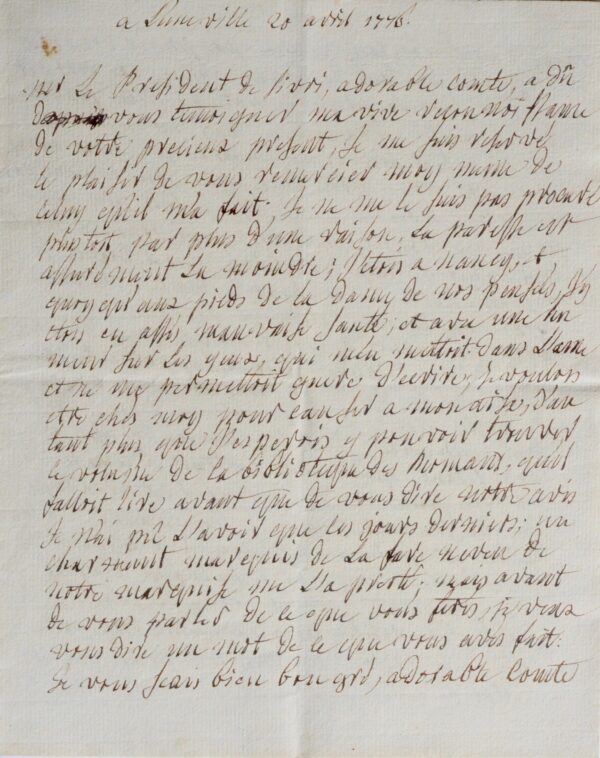 a Luneville 20 avril 1776.
Mr Le President de Sivri, adorable comte, a dû
vous temoigner ma vive reconnoissance
de votre precieux present, Je me suis reservé
le plaisir de vous remercier moy meme de
celuy qu'il m'a fait. Je ne me le suis pas procuré
plustot par plus d'une raison, La paresse est
assurement La moindre; J'etois a nancy, et
quoy qu'aux pieds de la dame de nos pensées, J'y
etois en assés mauvaise santé, et avec une hu
meur sur Les yeux, qui m'en mettoit dans L'ame
et ne me permettoit guere d'ecrire, Je voulois
etre chez moy pour causer a mon aise, d'au
tant plus que J'esperois y pouvoir trouver
le volume de la bibliotheque des Romans, qu'il
falloit lire avant que de vous dire notre avis
Je n'ai pû L'avoir que les jours derniers; un
charmant marquis de La fare neveu de
notre marquise me L'a preté; mais avant
de vous parler de ce que vous ferés, je veux
vous dire un mot de ce que vous avés fait.
Je vous scais bien bon gré, adorable Comte